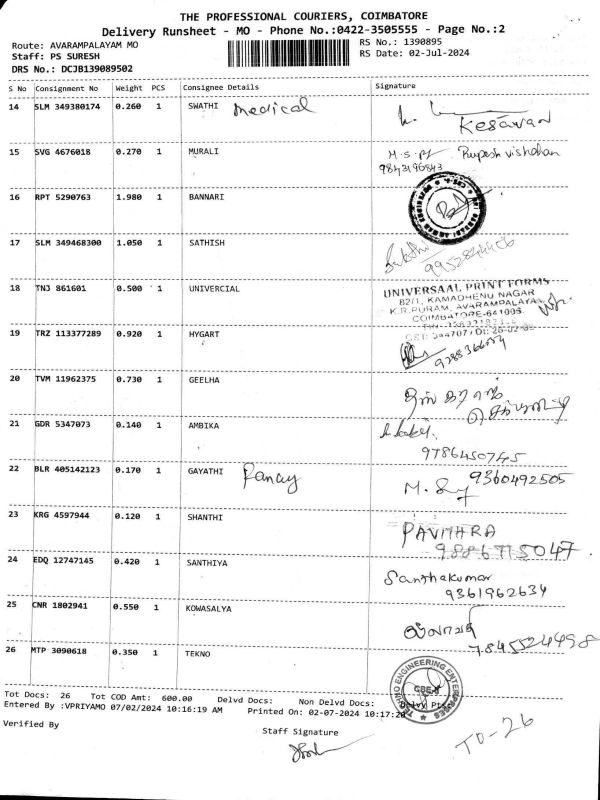 THE PROFESSIONAL COURIERS, COIMBATORE
Delivery Runsheet - MO - Phone No.:0422-3505555 - Page No.:2
Route: AVARAMPALAYAM MO
Staff: PS SURESH
DRS No.: DCJB139089502
RS No.: 1390895
RS Date: 02-Jul-2024
S No Consignment No Weight PCS Consignee Details Signature
14 SLM 349380174 0.260 1 SWATHI Medical Kesavan
15 SVG 4676018 0.270 1 MURALI
16 RPT 5290763 1.980 1 BANNARI
17 SLM 349468300 1.050 1 SATHISH
18 TNJ 861601 0.500 1 UNIVERCIAL
UNIVERSAAL PRINT FORMS
82/1, KAMADHENU NAGAR
K.R.PURAM, AVARAMPALAYAM
COIMBATORE-641006
19 TRZ 113377289 0.920 1 HYGART
20 TVM 11962375 0.730 1 GEELHA
21 GDR 5347073 0.140 1 AMBIKA
9786450745
22 BLR 405142123 0.170 1 GAYATHI Fancy 9360492505
23 KRG 4597944 0.120 1 SHANTHI PAVITHRA
24 EDQ 12747145 0.420 1 SANTHIYA Santhakumar
9361962634
25 CNR 1802941 0.550 1 KOWASALYA
7845524498
26 MTP 3090618 0.350 1 TEKNO
TEKNO ENGINEERING ENTERPRISES
CBE
Tot Docs: 26 Tot COD Amt: 600.00 Delvd Docs: Non Delvd Docs: Delvy Pts
Entered By :VPRIYAMO 07/02/2024 10:16:19 AM Printed On: 02-07-2024 10:17:20
Verified By
Staff Signature
TO-26